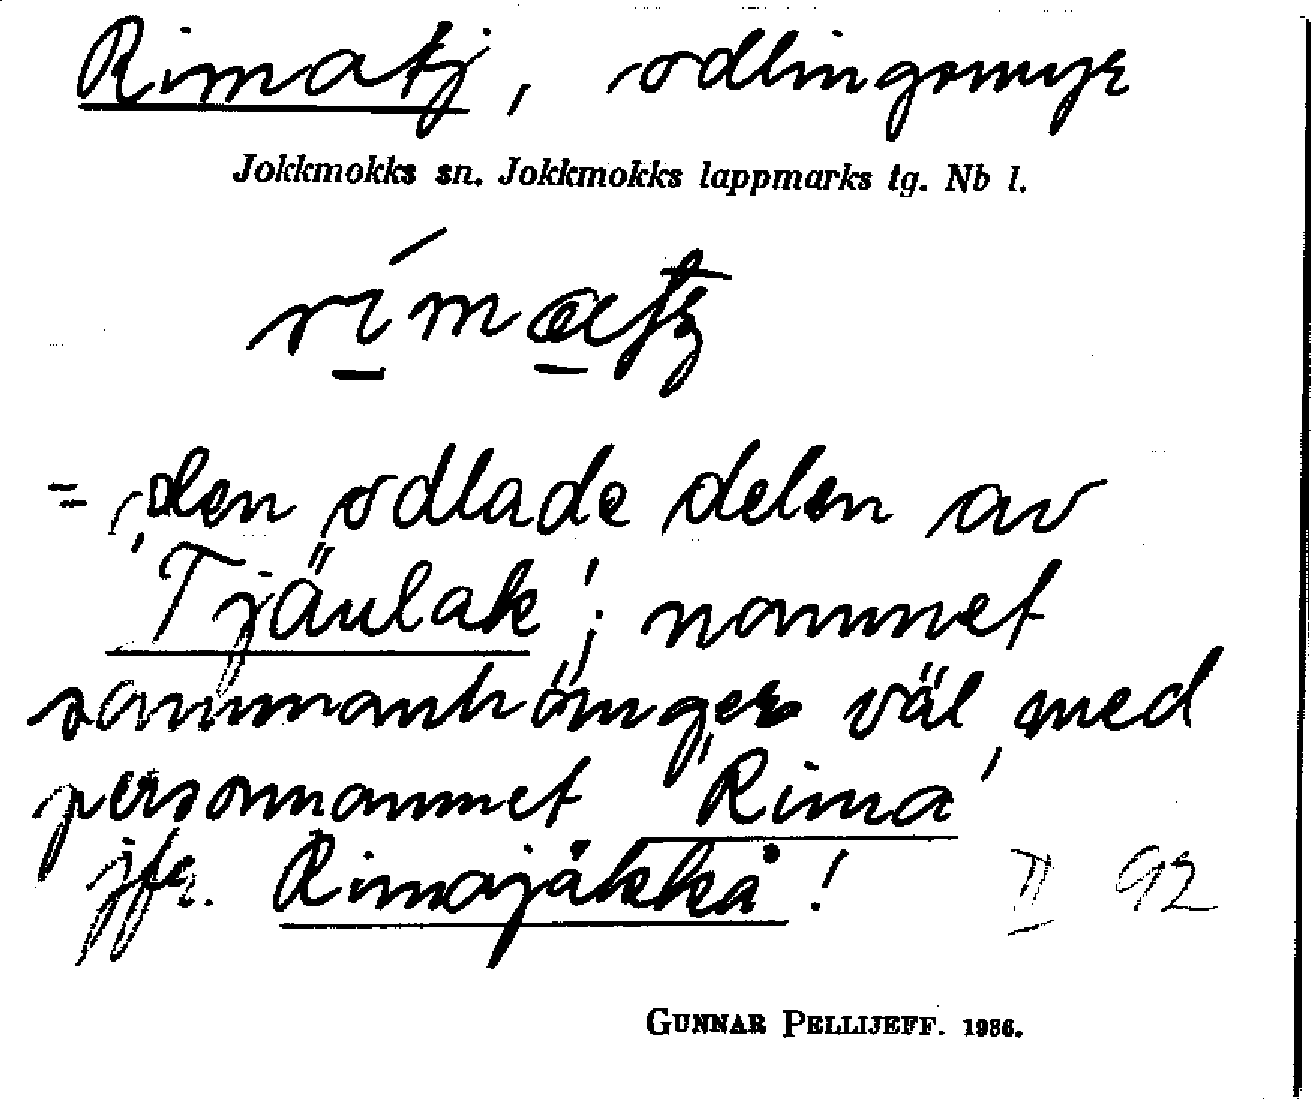 Rimatj, odlingsmyr
Jokkmokks sn. Jokkmokks lappmarks tg. Nb l.
= den odlade delen av
'Tjäulak'; nammet
sammanhänger väl med
personnamnet 'Rima'
jfr. Rimajåkkå!   II 92
GUNNAR PELLIJEFF. 1986.